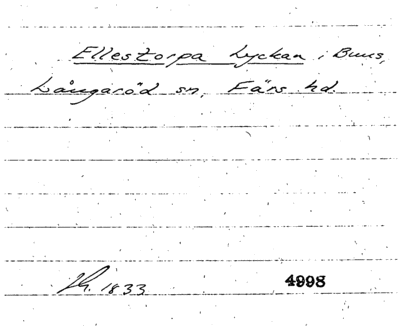 Ellestorpa Lyckan i Buus,
Långaröd sn, Färs hd.
1833 4998